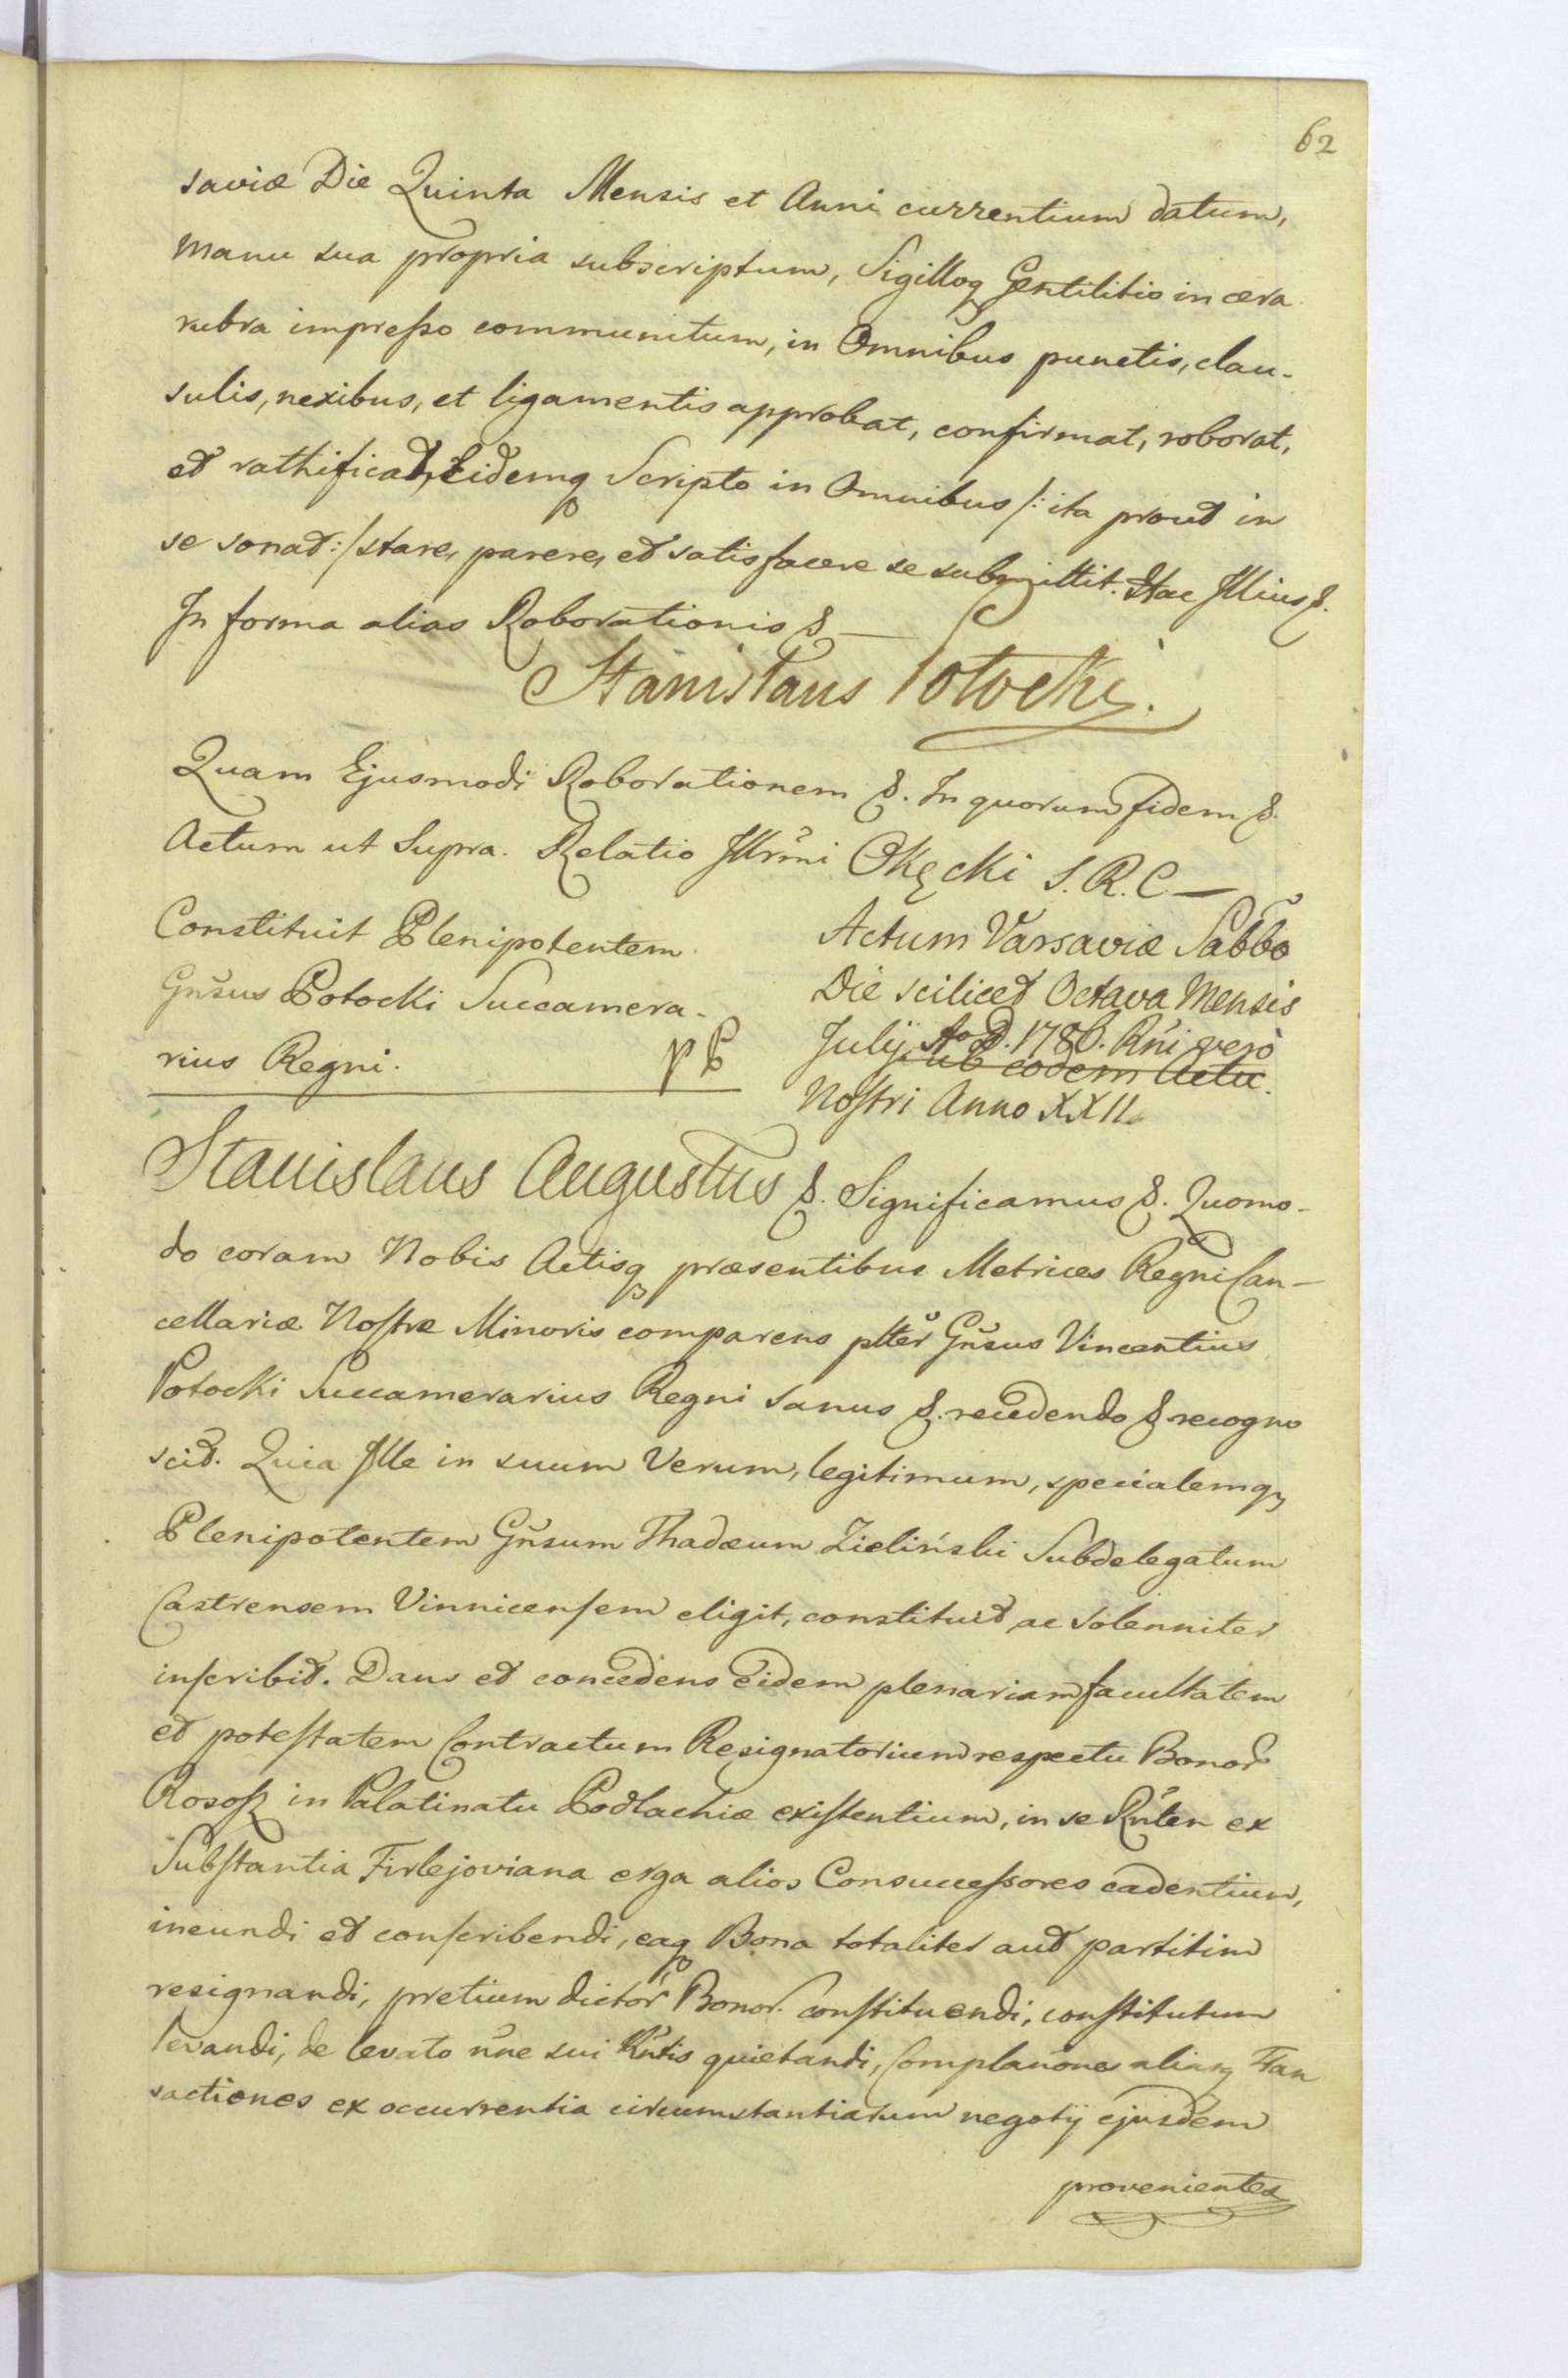 62
saviæ Die Quinta Mensis et Anni currentium datum,
Manu sua propria subscriptum, Sigilloq Gentilitio in cera
rubra impreſso communitum, in Omnibus punctis, clau-
sulis, nexibus, et ligamentis approbat, confirmat, roborat,
et rathificat, Eidemq Scripto in Omnibus /: ita prout in
se sonat :/ stare, parere, et satisfacere se submittit. Hac Illius &.
In forma alias Roborationis & —
Stanislaus Potocki.
Quam Ejusmodi Roborationem &. In quorum fidem &.
Actum ut Supra. Relatio Illrmi Okęcki S. R. C —
Constituit Plenipotentem
Gnsus Potocki Succamera-
rius Regni. pp
Actum Varsaviæ Sabbo
Die scilicet Octava Mensis
July Ao D. 1786. Rni vero
sub eodem Actu.
Noſtri Anno XXII.
Stanislaus Augustus &. Significamus &. Quomo-
do coram Nobis Actisq præsentibus Metrices Regni Can-
cellariæ Noſtræ Minoris comparens plter Gnsus Vincentius
Potocki Succamerarius Regni sanus &. recedendo & recogno
scit. Quia Ille in suum Verum, legitimum, specialemq
Plenipotentem Gnsum Thadæum Zieliński Subdelegatum
Castrensem Vinnicenſem eligit, constituit ac solenniter
inſcribit. Dans et concedens Eidem plenariam facultatem
et poteſtatem Contractum Resignatorium respectu Bonor
Rosoſz in Palatinatu Podlachiæ exiſtentium, in se Rnten ex
Subſtantia Firlejoviana erga alios Consucceſsores cadentium,
ineundi et conſcribendi, eaq Bona totaliter aut partitim
resignandi, pretium dictor Bonor. conſtituendi, conſtitutum
levandi, de levato nne sui Rntis quietandi, Complanones aliasq Tran
sactiones ex occurrentia circumstantiarum negotij ejusdem
provenientes